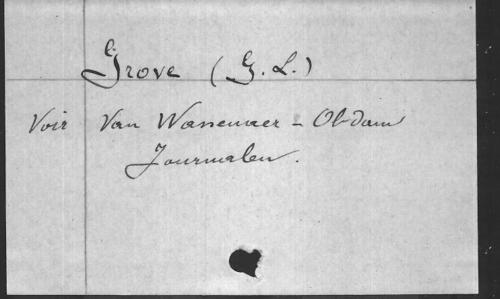 Grove (G. L.)
Voir Van Wassenaer - Obdam
Journalen.